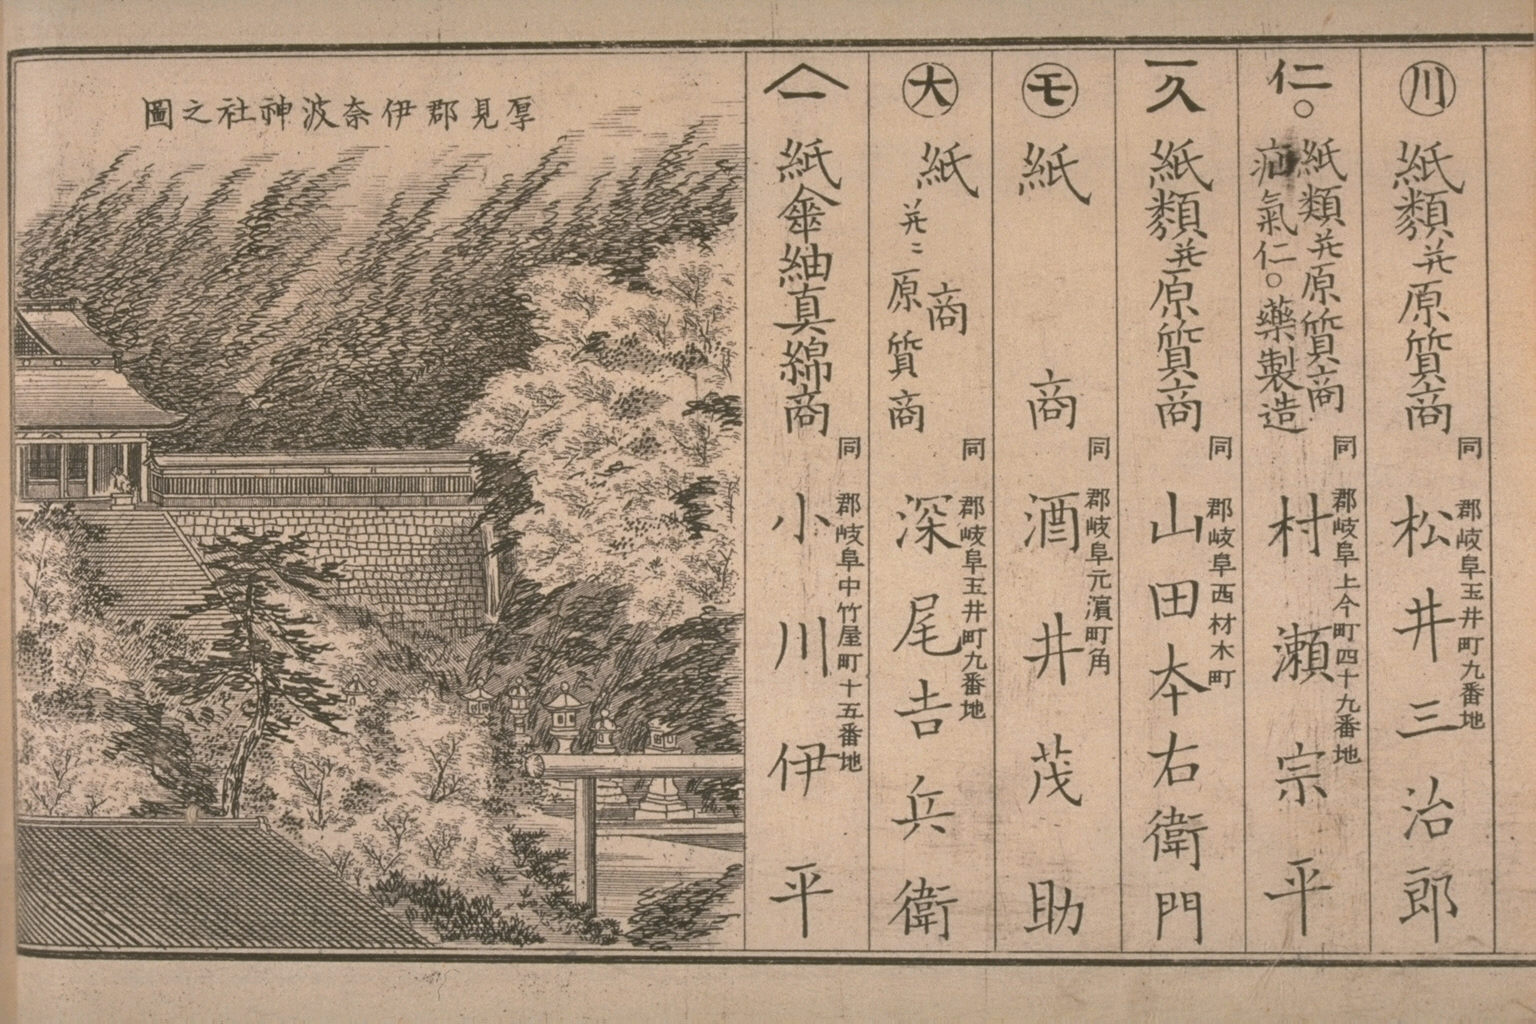 川
紙類并原質商
同郡岐阜玉井町九番地
松井三治郎
仁○
紙類并原質商
疝氣仁○藥製造
同郡岐阜上今町四十九番地
村瀬宗平
一久
紙類并原質商
同郡岐阜西材木町
山田本右衛門
モ
紙商
同郡岐阜元濵町角
酒井茂助
大
紙商
并ニ原質商
同郡岐阜玉井町九番地
深尾吉兵衛
一
紙傘紬真綿商
同郡岐阜中竹屋町十五番地
小川伊平
厚見郡伊奈波神社之圖